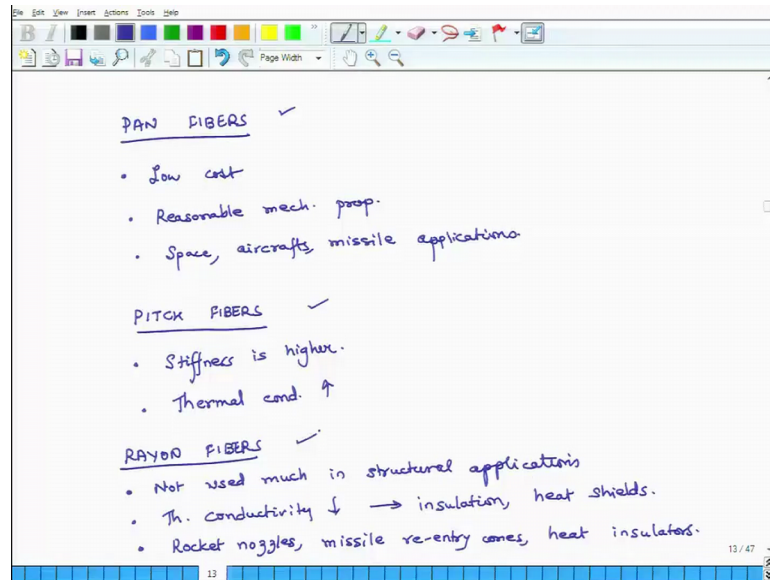 File Edit View Insert Actions Tools Help
B I
Page Width
PAN FIBERS
• Low cost
• Reasonable mech. prop.
• Space, aircrafts, missile applications.
PITCH FIBERS
• Stiffness is higher.
• Thermal cond. ↑
RAYON FIBERS
• Not used much in structural applications
• Th. conductivity ↓ → insulation, heat shields.
• Rocket nozzles, missile re-entry cones, heat insulators.
13 / 47
13